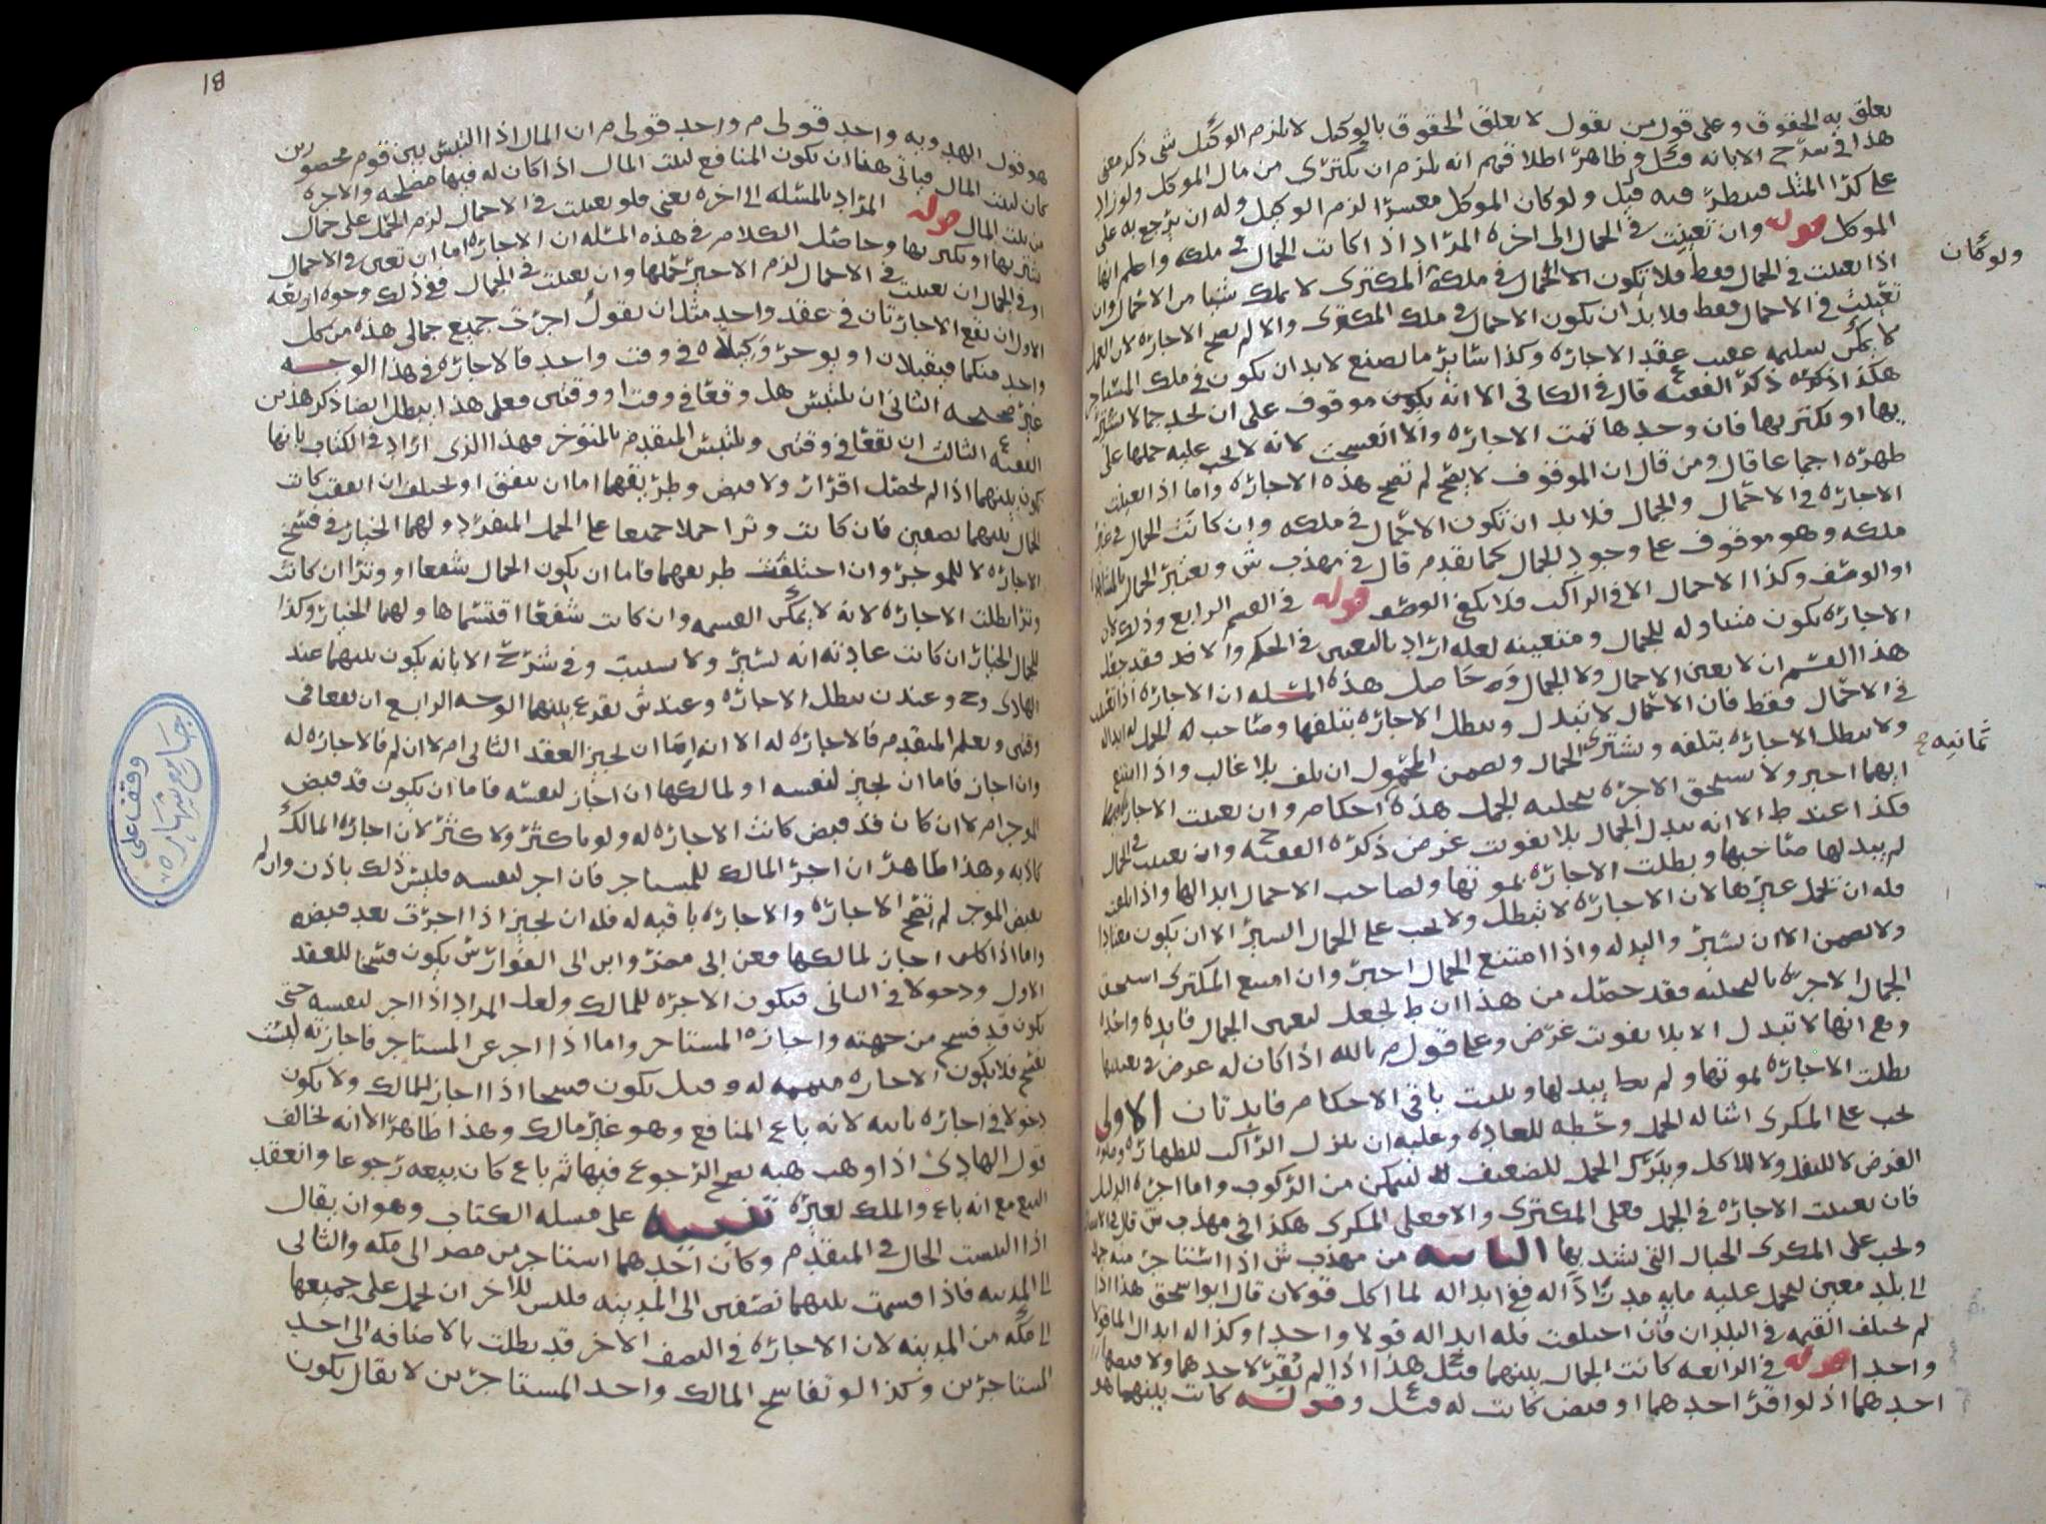 تعلق به الحقوق وعلى قول من يقول لا تعلق الحقوق بالوكيل لا يلزم الوكيل شي ذكر معنى
هذا في شرح الابانه وظاهر اطلاقهم انه يلزم ان يكترى من مال الموكل ولو زاد
على كرا المثل فينظر فيه قيل ولو كان الموكل معسرا لزم الوكيل وله ان يرجع به على
الموكل قوله وان تعينت في الجمال الى اخره المراد اذا كانت الجمال في ملكه واعلم انها
ولو كان
اذا تعينت في الجمال فقط فلا تكون الاحمال في ملكه المكترى لا يملك شيا من الاحمال وان
تعينت في الاحمال فقط فلا بد ان يكون الاحمال في ملك المكترى والا لم تصح الاجاره لان العمل
لا يمكن تسليمه عقيب عقد الاجاره وكذا سائر ما يصنع لا بد ان يكون في ملك المستاجر
هكذا ذكره الفقيه قال في الكافي الا انه يكون موقوف على ان يجد جمالا يشتريها
بها او يكتريها فان وجدها تمت الاجاره والا انفسخت لانه لا يجب عليه حملها على
ظهره اجماعا قال ومن قال ان الموقوف لا يصح لم تصح هذه الاجاره واما اذا تعينت
الاجاره في الاحمال والجمال فلا بد ان تكون الاحمال في ملكه وان كانت الجمال في غير
ملكه وهو موقوف على وجود الجمال كما تقدم قال في مهذب ش ويعتبر الجمال بالمشاهده
او الوصف وكذا الاحمال الا في الراكب فلا يكفي الوصف قوله في القسم الرابع وذلك لان
الاجاره تكون متناوله للجمال ومتعينه لعله اراد بالتعيين في الحكم والا فقد جعل
هذا القسم ان لا يعين الاحمال ولا الجمال وحاصل هذه المسله ان الاجاره اذا تعينت
في الاحمال فقط فان الاحمال لا تبدل وتبطل الاجاره بتلفها وصاحب الحمل له ابداله
ولا تبطل الاجاره بتلفه ويشترى الجمال ويضمن المحمول ان تلف بلا غالب واذا امتنع
ثمانيه
ايهما اجبر ولا يستحق الاجره بتخليه الجمل هذه احكام وان تعينت الاجاره
فكذا عند ط الا انه يبدل الجمال بلا تفوت غرض ذكره الفقيه وان تعينت في الجمال
لم يبدلها صاحبها وبطلت الاجاره بموتها ولصاحب الاحمال ابدالها واذا تلفت
فله ان يحمل غيرها لان الاجاره لا تبطل ولا يجب على الجمال السير الا ان يكون معتادا
ولا يضمن الا ان يسير والبدله واذا امتنع الجمال اجبر وان امتنع المكترى استحق
الجمال الاجره بالتخليه فقد حصل من هذا ان ط يجعل لتعيين الجمال فايده واحده
وهي انها لا تبدل الا بلا تفوت غرض وعلى قول م بالله اذا كان له غرض في تعيينها
بطلت الاجاره بموتها ولم يبدلها وتثبت باقي الاحكام فايدتان الاولى
يجب على المكرى اشاله الحمل وحطه للعاده وعليه ان ينزل الراكب للطهاره وصلوه
الفرض لا للنفل ولا للاكل ويبرك الجمل للضعيف ليتمكن من الركوب واما اجره الدليل
فان تعينت الاجاره في الحمل فعلى المكترى والا فعلى المكرى هكذا في مهذب ش قال في الانتصار
ويجب على المكرى الحبال التي يشد بها الثانيه من مهذب ش اذا استاجر منه جملا
الى بلد معين ليحمل عليه مايه مد زادا له ففي ابداله لما اكل قولان قال ابو اسحق هذا اذا
لم تختلف القيمه في البلدان فان اختلفت فله ابداله قولا واحدا وكذا له ابدال الما قولا
واحدا قوله في الرابعه كانت الجمال بينهما قيل هذا اذا لم يقر لاحدهما ولا قبضها
احدهما اذ لو اقر احدهما او قبض كانت له قيل وقوله كانت بينهما هو
81
هو قول الهدويه واحد قولي م واحد قولي م ان المال اذا التبس بين قوم محصورين
كان لبيت المال فياتي هنا ان يكون المنافع لبيت المال اذا كان له فيها مصلحه والاجره
من بيت المال قوله المراد بالمسله الى اخره يعني فلو تعينت في الاحمال لزم الحمل على جمال
يشتريها او يكتريها وحاصل الكلام في هذه المسله ان الاجاره اما ان تعين في الاحمال
او في الجمال ان تعينت في الاحمال لزم الاجير حملها وان تعينت في الجمال ففي ذلك وجوه اربعه
الاول ان تقع الاجارتان في عقد واحد مثل ان يقول اجرت جميع جمالي هذه من كل
واحد منكما فيقبلان او يوجر وكيلاه في وقت واحد فالاجاره في هذا الوجه
غير صحيحه الثاني ان يلتبس هل وقعا في وقت او وقتين فعلى هذا يبطل ايضا ذكر هذين
الفقيه الثالث ان تقعا في وقتين ويلتبس المتقدم بالمتوخر فهذا الذي اراد في الكتاب بانها
تكون بينهما اذا لم يحصل اقرار ولا قبض وطريقهما اما ان يتفق او يختلف ان اتفقت كانت
الجمال بينهما نصفين فان كانت وترا حملا جميعا على الجمل المنفرد ولهما الخيار في فسخ
الاجاره لا للموجر وان اختلفت طريقهما فاما ان يكون الجمال شفعا او وترا ان كانت
وترا بطلت الاجاره لانه لا يمكن القسمه وان كانت شفعا اقتسماها ولهما الخيار وكذا
للجمال الخيار ان كانت عادته انه يسير ولا سيبت وفي شرح الابانه يكون بينهما عند
الهادي وح وعند ن تبطل الاجاره وعند ش يقرع بينهما الوجه الرابع ان يقعا في
وقتين ويعلم المتقدم فالاجاره له الا انه اما ان يجيز العقد الثاني ام لا ان لم فالاجاره له
وان اجاز فاما ان يجيز لنفسه او لمالكها ان اجاز لنفسه فاما ان يكون قد قبض
الموجر ام لا ان كان قد قبض كانت الاجاره له ولو باكثر ولا كثر لان اجازه المالك
كاذنه وهذا ظاهر ان اجر المالك للمستاجر فان اجر لنفسه فليس ذلك باذن وان لم
يقبض الموجر لم تصح الاجاره والاجاره باقيه له فله ان يجيز اذا اجرت بعد قبضه
واما اذا كان اجاز لمالكها فعن ابي مضر وابن ابي الفوارس يكون فسخا للعقد
الاول ودخولا في الثاني فيكون الاجره للمالك ولعل المراد اذا اجر لنفسه حتى
يكون قد فسخ من جهته واجازه المستاجر واما اذا اجر عن المستاجر فاجازته ليست
بفسخ فلا يكون الاجاره له وقيل يكون فسخا اذا اجاز للمالك ولا يكون
دخولا في اجاره ثانيه لانه باع المنافع وهو غير مالك وهذا ظاهر الا انه يخالف
قول الهادي اذا وهب هبه يصح الرجوع فيها ثم باع كان بيعه رجوعا وانعقد
البيع مع انه باع والملك لغيره تنبيه على مسله الكتاب وهو ان يقال
اذا التبست الحال في المتقدم وكان احدهما استاجر من مصر الى مكه والثاني
الى المدينه فاذا قسمت بينهما نصفين الى المدينه فليس للاخر ان يحمل على جميعها
الى مكه من المدينه لان الاجاره في النصف الاخر قد بطلت بالاضافه الى احد
المستاجرين وكذا لو تفاسخ المالك واحد المستاجرين لا يقال يكون
وقف على
جامع شهاره